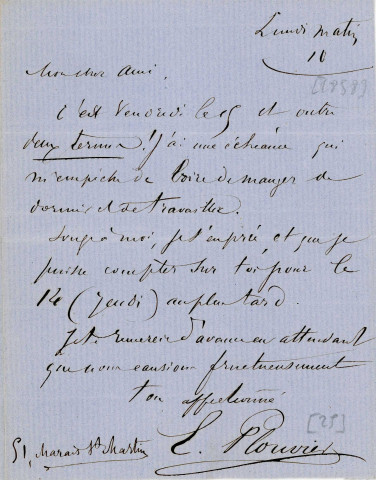 Lundi matin
10
[1858]
Mon cher ami,
C'est Vendredi le 15 et outre
deux termes ! J'ai une échéance qui
m'empêche de boire de manger de
dormir et de travailler.
Songe à moi, je t'en prie et que je
puisse compter sur toi pour le
14 (jeudi) au plus tard.
Je te remercie d'avance en attendant
que nous causions fructueusement
ton affectionné
[25]
E. Plouvier
51, Marais St Martin